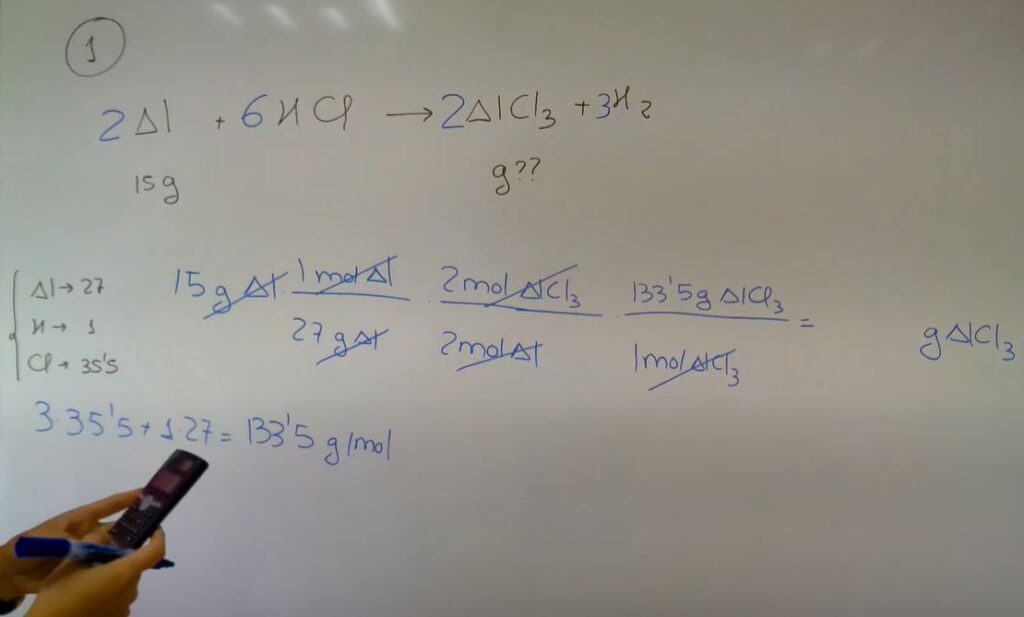 1
2Al + 6HCl → 2AlCl₃ + 3H₂
15g g??
Al → 27
H → 1
Cl → 35'5
15g Al · 1mol Al / 27 g Al · 2mol AlCl₃ / 2mol Al · 133'5g AlCl₃ / 1mol AlCl₃ = g AlCl₃
3·35'5 + 1·27 = 133'5 g/mol